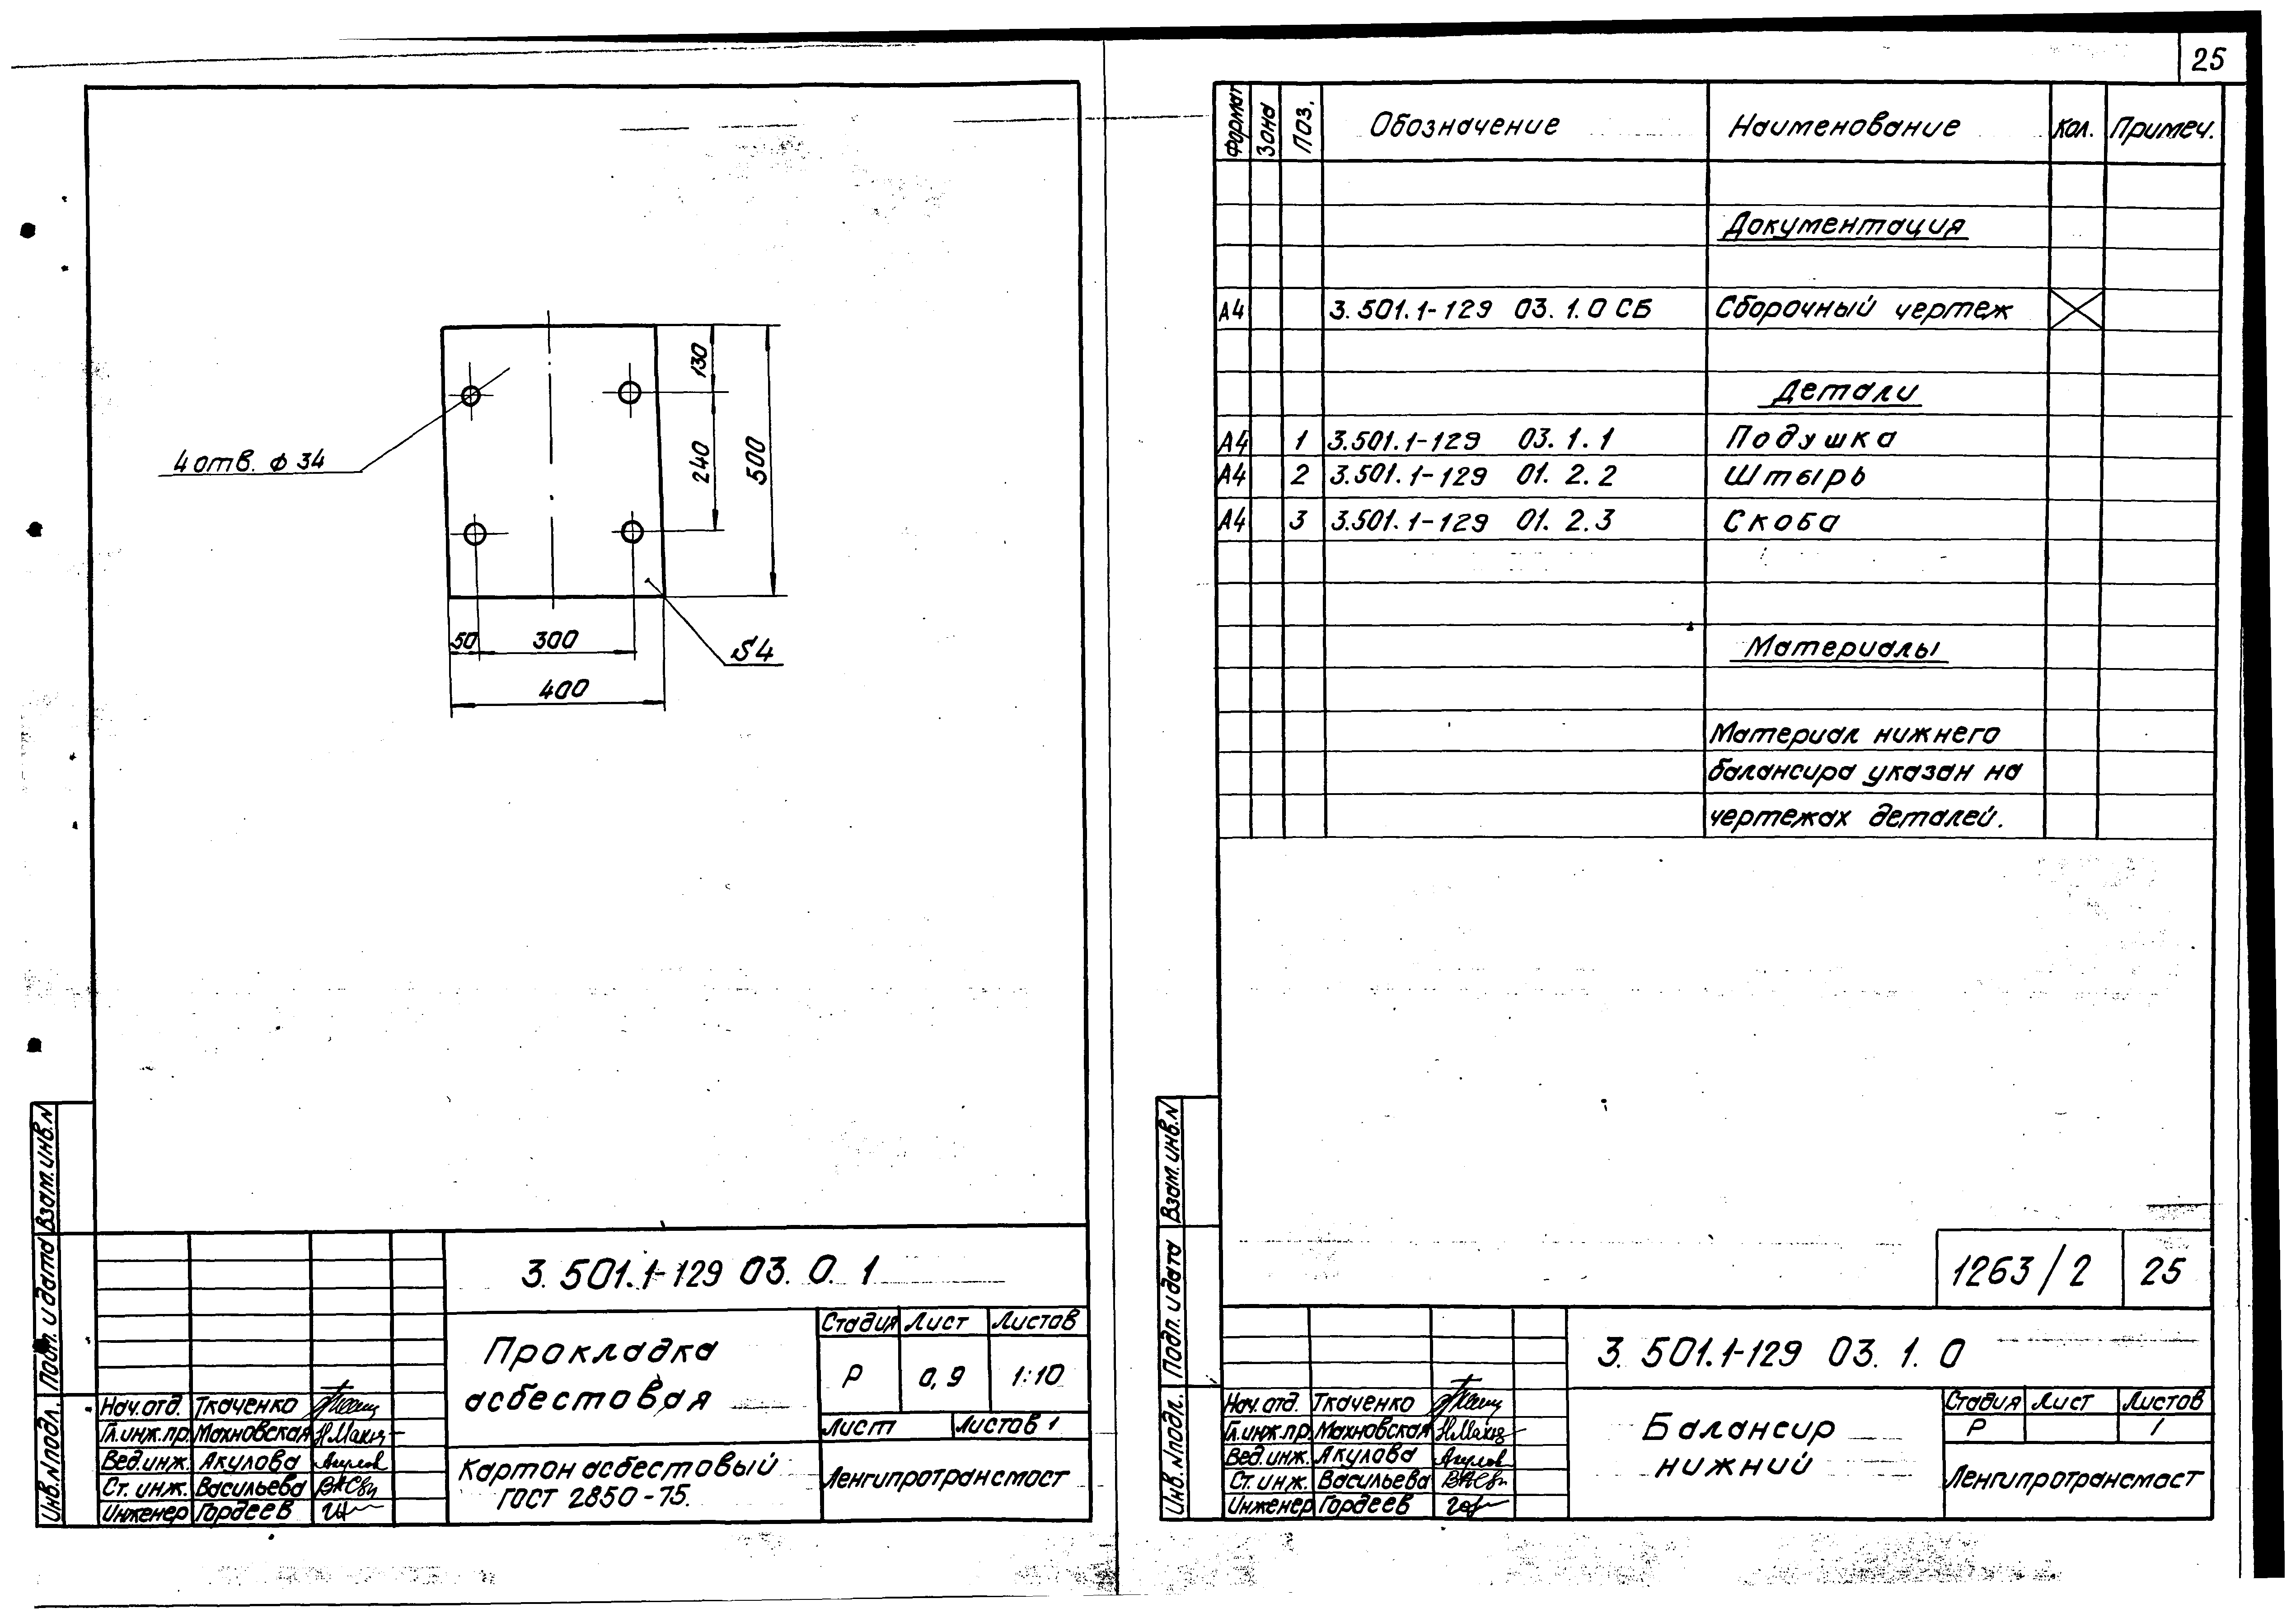 25
4 отв. ф 34
130
240
500
50
300
400
S4
Взам. инв. N
Подп. и дата
Инв. N подл.
3. 501.1-129 03. 0. 1
Прокладка
асбестовая
Стадия Лист Листов
Р 0,9 1:10
Лист Листов 1
Картон асбестовый
ГОСТ 2850-75.
Ленгипротрансмост
Нач. отд. Ткаченко
Гл. инж. пр. Махновская
Вед. инж. Акулова
Ст. инж. Васильева
Инженер Гордеев
Формат Зона Поз. Обозначение Наименование Кол. Примеч.
Документация
А4 3. 501. 1-129 03. 1. 0 СБ Сборочный чертеж
Детали
А4 1 3.501. 1-129 03. 1. 1 Подушка
А4 2 3.501. 1-129 01. 2. 2 Штырь
А4 3 3.501. 1-129 01. 2. 3 Скоба
Материалы
Материал нижнего
балансира указан на
чертежах деталей.
Взам. инв. N
Подп. и дата
Инв. N подл.
1263/2 25
3. 501.1-129 03. 1. 0
Балансир
нижний
Стадия Лист Листов
Р 1
Ленгипротрансмост
Нач. отд. Ткаченко
Гл. инж. пр. Махновская
Вед. инж. Акулова
Ст. инж. Васильева
Инженер Гордеев